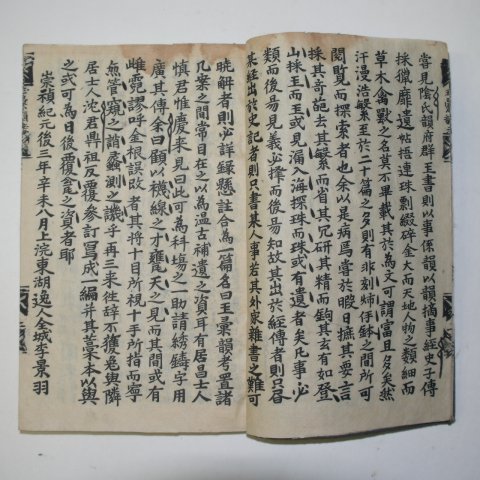 嘗見陰氏韻府群玉書則以事係韻以韻摘事經史子傳
採獵靡遺帖括連珠剽綴碎金大而天地人物之類細而
草木禽獸之名莫不畢載其於為文可謂富且多矣然
汗漫浩繁至於二十篇之多則有非刻燭伴鉢之間所可
閱覽而探索者也余以是病焉嘗於暇日摭其要言
採其奇葩去其繁而省其冗研其精而鉤其玄有如登
山採玉而玉或見漏入海探珠而珠或有遺者矣凡事必
類而後易見義必擇而後易知故其出於經傳者則只召
某經出於史記者則只書某人事若其外家雜書之難可
曉解者則必詳録懸註合為一篇名曰玉彙韻考置諸
几案之間常目在之以為温古補遺之資耳有居昌士人
慎君惟慶來見曰此可為科場之一助請綉鑄字用
廣其傳余曰顧以襪線之才甕天之見而其間或有
雌霓謬呼金根誤改者其將十目所視十手所指而寧
無管窺之誚蠡測之譏乎再三来往辞不獲已與隣
居士人沈君鼎祖反覆參訂寫成一編并其藁本以與
之或可為日後覆瓿之資者耶
崇禎紀元後三年辛未八月上浣東湖逸人全城李景羽